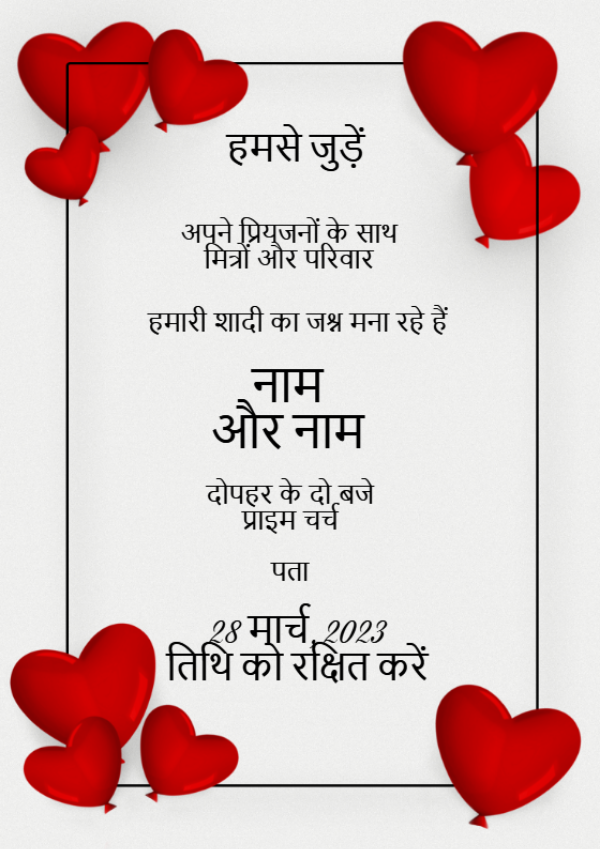 हमसे जुड़ें
अपने प्रियजनों के साथ
मित्रों और परिवार
हमारी शादी का जश्न मना रहे हैं
नाम
और नाम
दोपहर के दो बजे
प्राइम चर्च
पता
28 मार्च, 2023
तिथि को रक्षित करें